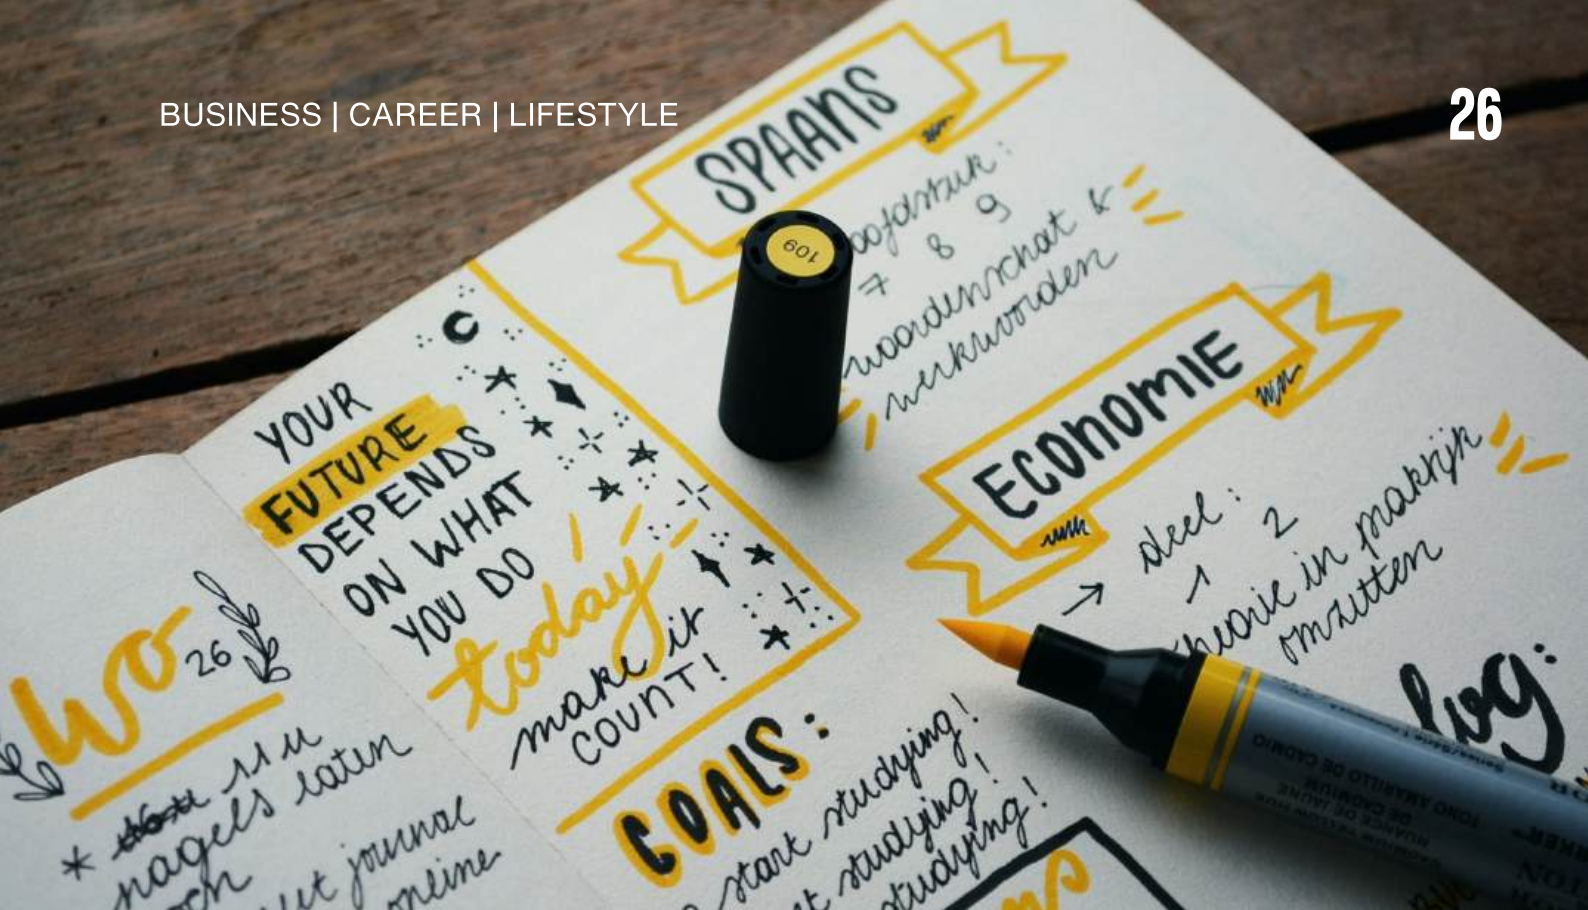 BUSINESS | CAREER | LIFESTYLE
26
SPAANS
7 8 9
woordenschat &
werkwoorden
109
ECONOMIE
→ deel:
1 2
theorie in praktijk
omzetten
YOUR
FUTURE
DEPENDS
ON WHAT
YOU DO
today
make it
COUNT!
GOALS:
start studying!
studying!
studying!
wo
26
11 u
* nagels laten
journal
online
log:
TONO AMARILLO DE CADMIO
NUANCE DE JAUNE
DE CADMIUM